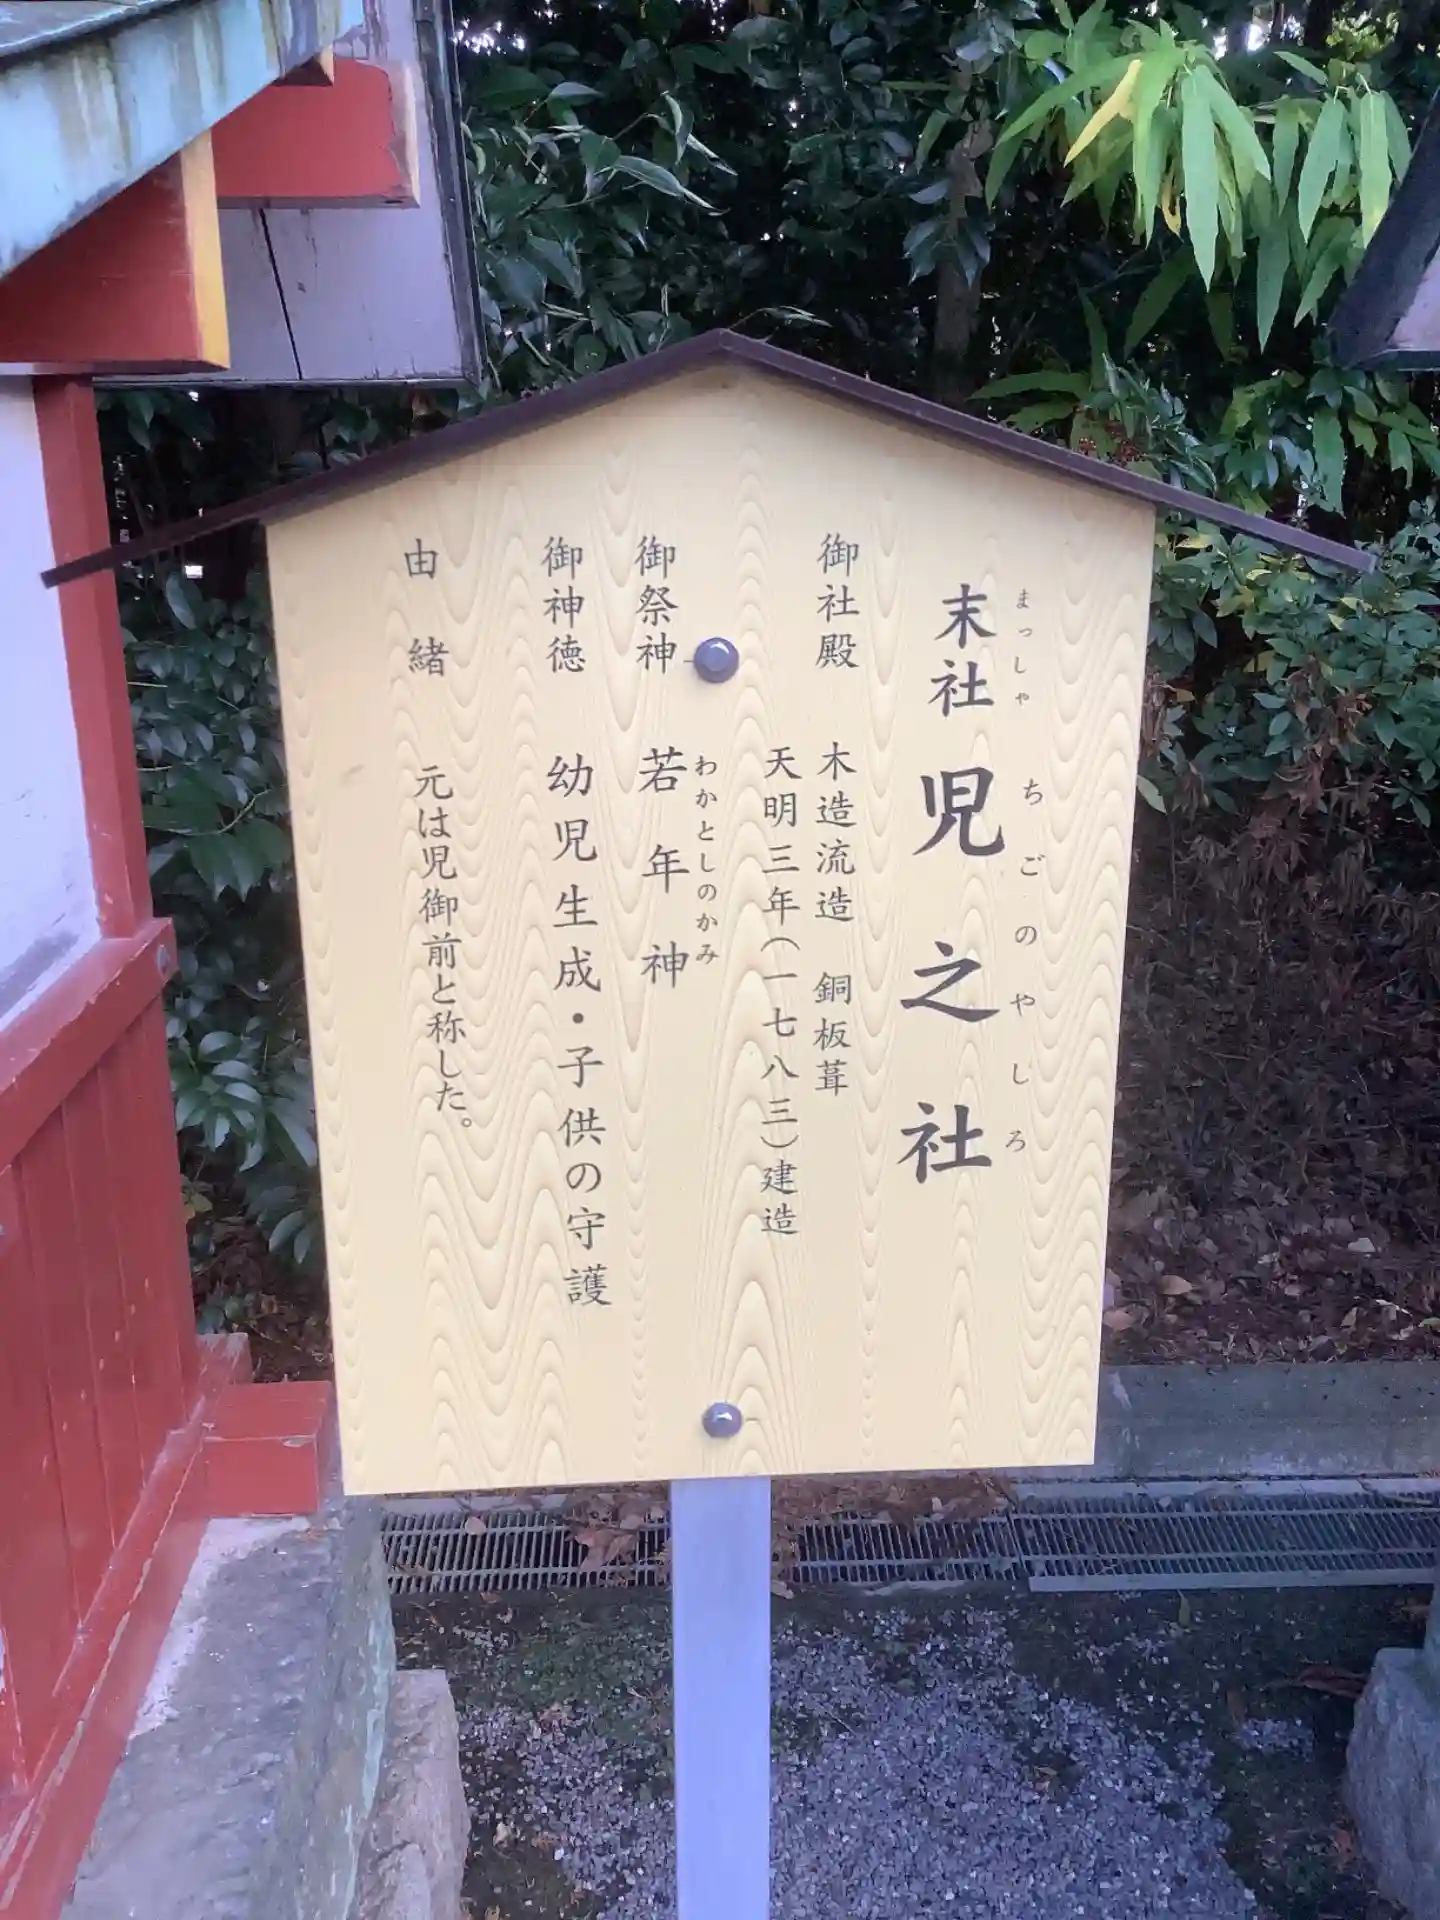 まっしゃ ちごのやしろ
末社 児之社
御社殿 木造流造 銅板葺
天明三年(一七八三)建造
わかとしのかみ
御祭神 若年神
御神徳 幼児生成・子供の守護
由緒 元は児御前と称した。